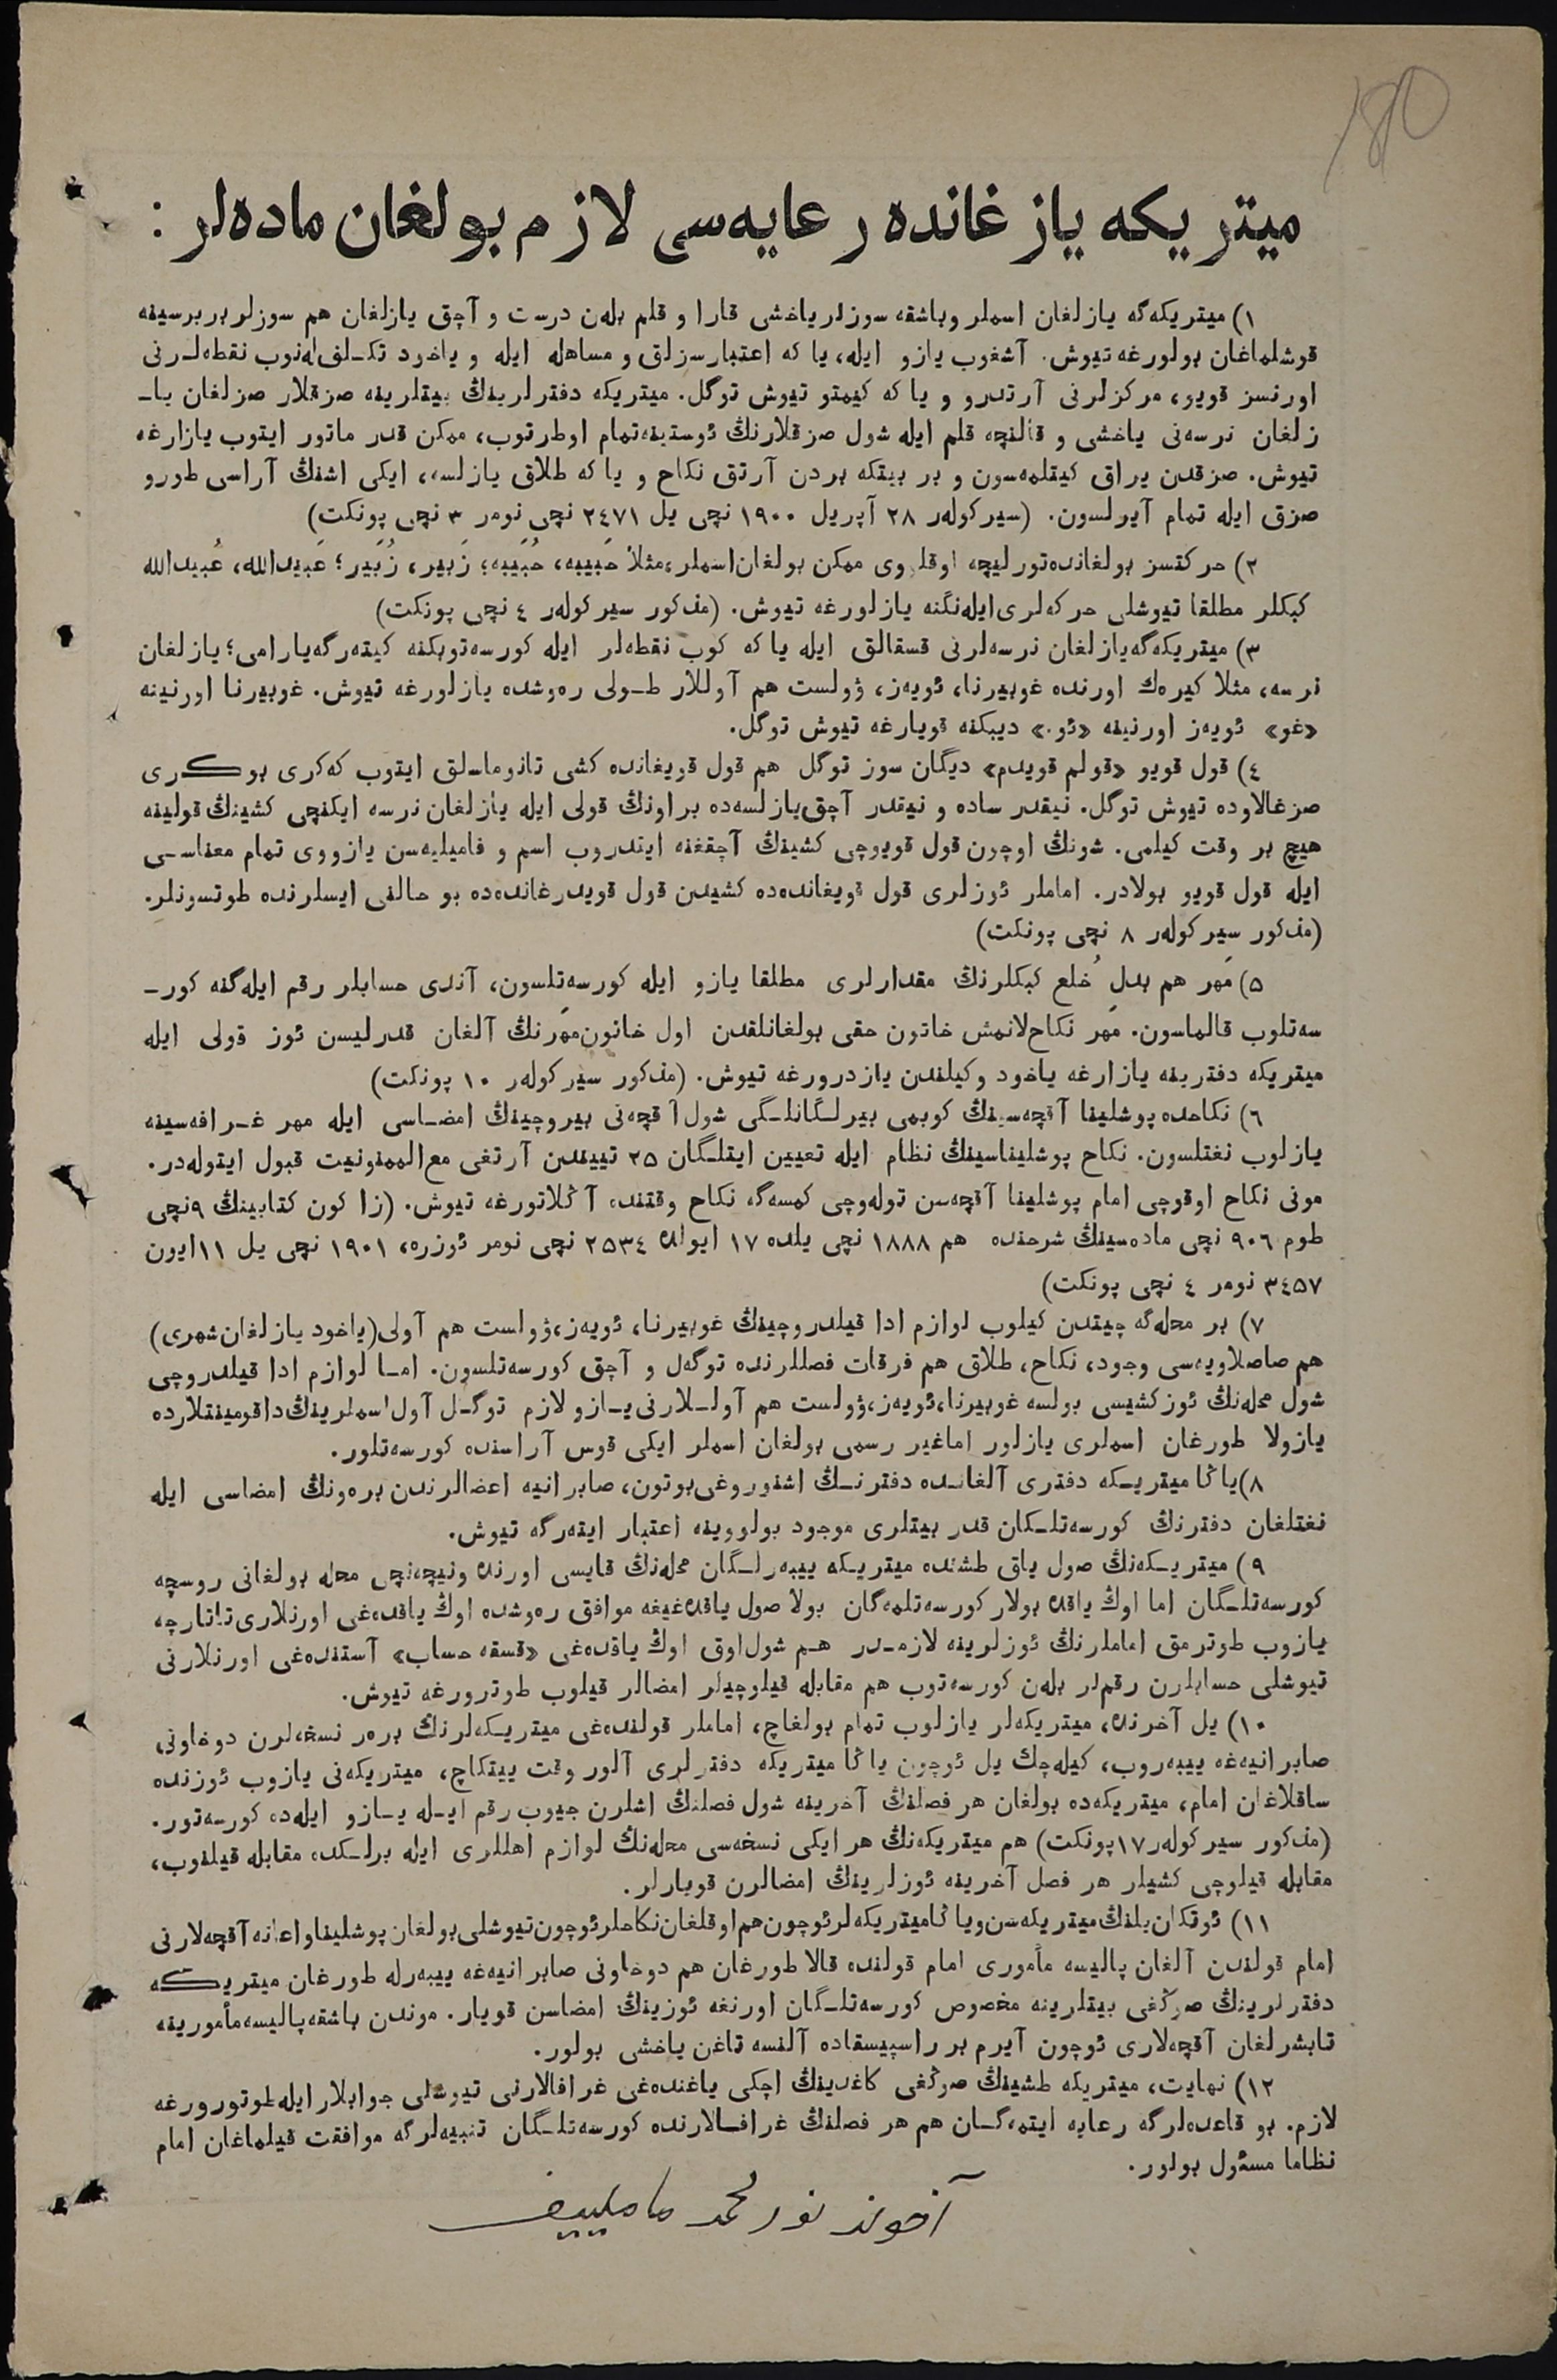 180
ميتريكه يازغانده رعايه‌سى لازم بولغان ماده‌لر :
١) ميتريكه‌گه يازلغان اسملر وباشقه سوزلر ياخشى قارا و قلم بله‌ن درست و آچق يازلغان هم سوزلر بربرسينه
قوشلماغان بولورغه تيوش. آشغوب يازو ايله، يا كه اعتبارسزلق و مساهله ايله و ياخود تكـلف‌له‌نوب نقطه‌لـرنى
اورنسز قويو، مركزلرنى آرتدرو و يا كه كيمتو تيوش توگل. ميتريكه دفترلرينڭ بيتلرينه صزقلار صزلغان ياـ
زلغان نرسه‌نى ياخشى و قالنچه قلم ايله شول صزقلارنڭ ئوستينه‌تمام اوطرتوب، ممكن قدر ماتور ايتوب يازارغه
تيوش. صزقدن يراق كيتلمه‌سون و بر بيتكه بردن آرتق نكاح و يا كه طلاق يازلسه، ايكى اشنڭ آراسى طورو
صزق ايله تمام آيرلسون. (سيركولەر ٢٨ آپريل ١٩٠٠ نچى يل ٢٤٧١ نچى نومر ٣ نچى پونكت)
٢) حركتسز بولغانده‌تورليچه اوقلووى ممكن بولغان‌اسملر،مثلاً حَبيبه، حُبَيبه؛ زَبير، زُبَير؛ عَبيدالله، عُبيدالله
كبكلر مطلقا تيوشلى حركه‌لرى‌ايله‌نگنه يازلورغه تيوش. (مذكور سيركولەر ٤ نچى پونكت)
٣) ميتريكه‌گه‌يازلغان نرسه‌لرنى قسقالق ايله يا كه كوب نقطه‌لر ايله كورسه‌توبكنه كيته‌رگه‌يارامى؛ يازلغان
نرسه، مثلا كيره‌ك اورنده غوبيرنا، ئويه‌ز، ۋولست هم آوللار طـولى ره‌وشده يازلورغه تيوش. غوبيرنا اورنينه
«غو» ئويه‌ز اورنينه «ئو.» ديبكنه قويارغه تيوش توگل.
٤) قول قويو «قولم قويدم» ديگان سوز توگل هم قول قويغانده كشى تانوماسـلق ايتوب كه‌كرى بوكرى
صزغالاوده تيوش توگل. نيقدر ساده و نيقدر آچق‌يازلسه‌ده براونڭ قولى ايله يازلغان نرسه ايكنچى كشينڭ قولينه
هيچ بر وقت كيلمى. شونڭ اوچون قول قويوچى كشينڭ آچقغنه ايتدروب اسم و فاميليه‌سن يازووى تمام معناسـى
ايله قول قويو بولادر. اماملر ئوزلرى قول قويغانده‌ده كشيدن قول قويدرغانده‌ده بو حالنى ايسلرنده طوتسونلر.
(مذكور سيركولەر ٨ نچى پونكت)
٥) مَهر هم بدلِ خُلع كبكلرنڭ مقدارلرى مطلقا يازو ايله كورسه‌تلسون، آندى حسابلر رقم ايله‌گنه كورـ
سه‌تلوب قالماسون. مَهر نكاح‌لانمش خاتون حقى بولغانلقدن اول خاتون‌مَهرنڭ آلغان قدرليسن ئوز قولى ايله
ميتريكه دفترينه يازارغه ياخود وكيلندن يازدرورغه تيوش. (مذكور سيركولەر ١٠ پونكت)
٦) نكاحده پوشلينا آقچه‌سينڭ كوبمى بيرلـگانلـگى شول آقچه‌نى بيروچينڭ امضـاسى ايله مهر غـرافه‌سينه
يازلوب نغتلسون. نكاح پوشليناسينڭ نظام ايله تعيين ايتلـگان ٢٥ تييندن آرتغى مع‌الممنونيت قبول ايتوله‌در.
مونى نكاح اوقوچى امام پوشلينا آقچه‌سن توله‌وچى كمسه‌گه نكاح وقتنده آڭلاتورغه تيوش. (زا كون كتابينڭ ٩نچى
طوم ٩٠٦ نچى ماده‌سينڭ شرحنده هم ١٨٨٨ نچى يلده ١٧ ايولده ٢٥٣٤ نچى نومر ئوزره، ١٩٠١ نچى يل ١١ايون
٣٤٥٧ نومر ٤ نچى پونكت)
٧) بر محله‌گه چيتدن كيلوب لوازم ادا قيلدروچينڭ غوبيرنا، ئويه‌ز،ۋولست هم آولى(ياخود يازلغان‌شهرى)
هم صاصلاويه‌سى وجود، نكاح، طلاق هم فرقات فصللرنده توگه‌ل و آچق كورسه‌تلسون. امـا لوازم ادا قيلدروچى
شول محله‌نڭ ئوزكشيسى بولسه غوبيرنا،ئويه‌ز،ۋولست هم آولـلارنى‌يـازو لازم توگـل آول‌اسملرينڭ‌داقومينتلارده
يازولا طورغان اسملرى يازلور اماغير رسمى بولغان اسملر ايكى قوس آراسنده كورسه‌تلور.
٨)ياڭا ميتريـكه دفترى آلغانـده دفترنـڭ اشنوروغى‌بوتون، صابرانيه اعضالرندن بره‌ونڭ امضاسى ايله
نغتلغان دفترنڭ كورسه‌تلـكان قدر بيتلرى موجود بولووينه اعتبار ايته‌رگه تيوش.
٩) ميتريـكه‌نڭ صول ياق طشنده ميتريـكه ييبه‌رلـگان محله‌نڭ قايسى اورنده ونيچه‌نچى محله بولغانى روسچه
كورسه‌تلـگان اما اوڭ ياقده بولار كورسه‌تلمه‌گان بولا صول ياقده‌غيغه موافق ره‌وشده اوڭ ياقده‌غى اورنلارى‌تاتارچه
يازوب طوترمق اماملرنڭ ئوزلرينه لازمـدر هـم شول‌اوق اوڭ ياقده‌غى «قسقه حساب» آستنده‌غى اورنلارنى
تيوشلى حسابلرن رقم‌لر بله‌ن كورسه‌توب هم مقابله قيلوچيلر امضالر قيلوب طوترورغه تيوش.
١٠) يل آخرنده، ميتريكه‌لر يازلوب تمام بولغاچ، اماملر قولنده‌غى ميتريـكه‌لرنڭ بره‌ر نسخه‌لرن دوخاونى
صابرانيه‌غه ييبه‌روب، كيله‌چك يل ئوچون ياڭا ميتريكه دفترلرى آلور وقت ييتكاچ، ميتريكه‌نى يازوب ئوزنده
ساقلاغان امام، ميتريكه‌ده بولغان هر فصلنڭ آخرينه شول فصلنڭ اشلرن جيوب رقم ايـله يـازو ايله‌ده كورسه‌تور.
(مذكور سيركولەر ١٧پونكت) هم ميتريكه‌نڭ هر ايكى نسخه‌سى محله‌نڭ لوازم اهللرى ايله برلـكده مقابله قيلنوب،
مقابله قيلوچى كشيلر هر فصل آخرينه ئوزلرينڭ امضالرن قويارلر.
١١) ئوتكان‌يلنڭ‌ميتريكه‌سن‌وياڭاميتريكه‌لرئوچون‌هم‌اوقلغان‌نكاحلرئوچون‌تيوشلى‌بولغان‌پوشليناواعانه آقچه‌لارنى
امام قولندن آلغان پاليسه مأمورى امام قولنده قالا طورغان هم دوخاونى صابرانيه‌غه ييبه‌رله طورغان ميتريكه
دفترلرينڭ صوڭغى بيتلرينه مخصوص كورسه‌تلـگان اورنغه ئوزينڭ امضاسن قويار. موندن باشقه‌پاليسه‌مأمورينه
تابشرلغان آقچه‌لارى ئوچون آيرم بر راسپيسقاده آلنسه تاغن ياخشى بولور.
١٢) نهايت، ميتريكه طشينڭ صوڭغى كاغدينڭ اچكى ياغنده‌غى غرافالارنى تيوشلى جوابلار ايله‌طوتورورغه
لازم. بو قاعده‌لرگه رعايه ايتمه‌گـان هم هر فصلنڭ غرافـالارنده كورسه‌تلـگان تنبيه‌لرگه موافقت قيلماغان امام
نظاما مسئول بولور.
آخوند نورمحمد مامليييف